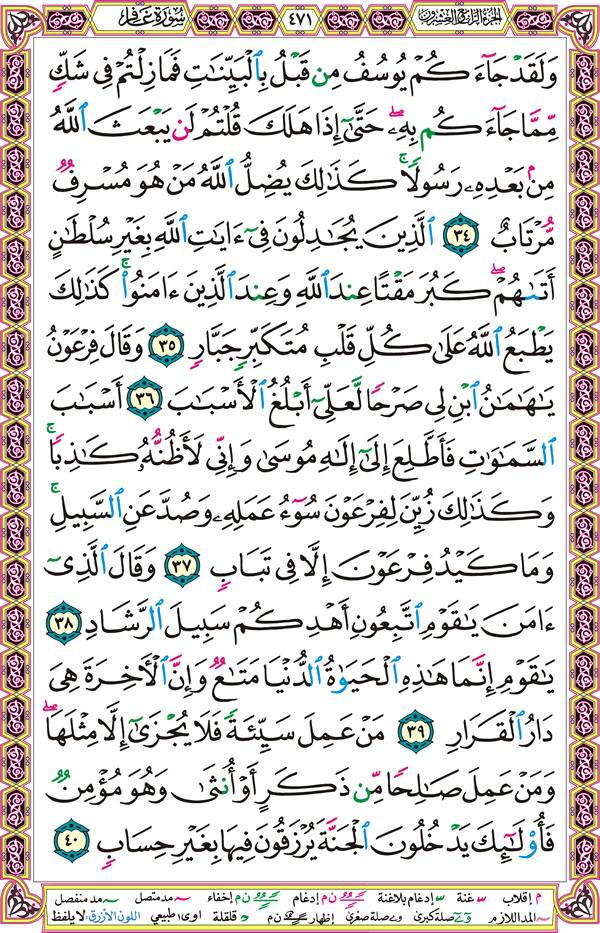 الجزء الرابع والعشرون ٤٧١ سورة غافر
وَلَقَدْ جَاءَكُمْ يُوسُفُ مِن قَبْلُ بِالْبَيِّنَاتِ فَمَا زِلْتُمْ فِي شَكٍّ
مِّمَّا جَاءَكُم بِهِ حَتَّىٰ إِذَا هَلَكَ قُلْتُمْ لَن يَبْعَثَ اللَّهُ
مِن بَعْدِهِ رَسُولًا كَذَٰلِكَ يُضِلُّ اللَّهُ مَنْ هُوَ مُسْرِفٌ
مُّرْتَابٌ ٣٤ الَّذِينَ يُجَادِلُونَ فِي ءَايَاتِ اللَّهِ بِغَيْرِ سُلْطَانٍ
أَتَاهُمْ كَبُرَ مَقْتًا عِندَ اللَّهِ وَعِندَ الَّذِينَ ءَامَنُوا كَذَٰلِكَ
يَطْبَعُ اللَّهُ عَلَىٰ كُلِّ قَلْبِ مُتَكَبِّرٍ جَبَّارٍ ٣٥ وَقَالَ فِرْعَوْنُ
يَا هَامَانُ ابْنِ لِي صَرْحًا لَّعَلِّي أَبْلُغُ الْأَسْبَابَ ٣٦ أَسْبَابَ
السَّمَاوَاتِ فَأَطَّلِعَ إِلَىٰ إِلَٰهِ مُوسَىٰ وَإِنِّي لَأَظُنُّهُ كَاذِبًا
وَكَذَٰلِكَ زُيِّنَ لِفِرْعَوْنَ سُوءُ عَمَلِهِ وَصُدَّ عَنِ السَّبِيلِ
وَمَا كَيْدُ فِرْعَوْنَ إِلَّا فِي تَبَابٍ ٣٧ وَقَالَ الَّذِي
ءَامَنَ يَا قَوْمِ اتَّبِعُونِ أَهْدِكُمْ سَبِيلَ الرَّشَادِ ٣٨
يَا قَوْمِ إِنَّمَا هَٰذِهِ الْحَيَوٰةُ الدُّنْيَا مَتَاعٌ وَإِنَّ الْآخِرَةَ هِيَ
دَارُ الْقَرَارِ ٣٩ مَنْ عَمِلَ سَيِّئَةً فَلَا يُجْزَىٰ إِلَّا مِثْلَهَا
وَمَنْ عَمِلَ صَالِحًا مِّن ذَكَرٍ أَوْ أُنثَىٰ وَهُوَ مُؤْمِنٌ
فَأُولَٰئِكَ يَدْخُلُونَ الْجَنَّةَ يُرْزَقُونَ فِيهَا بِغَيْرِ حِسَابٍ ٤٠
م إقلاب س غنة س إدغام بلاغنة ن م إدغام ن م إخفاء مد متصل مد منفصل
المد اللازم صلة كبرى صلة صغرى إظهار ن م قلقلة اوى ا طبيعي اللون الأزرق: لا يلفظ